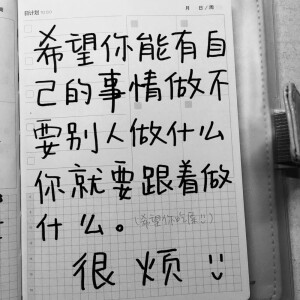 月 日/周
希望你能有自
己的事情做不
要别人做什么
你就要跟着做
什么。
很烦